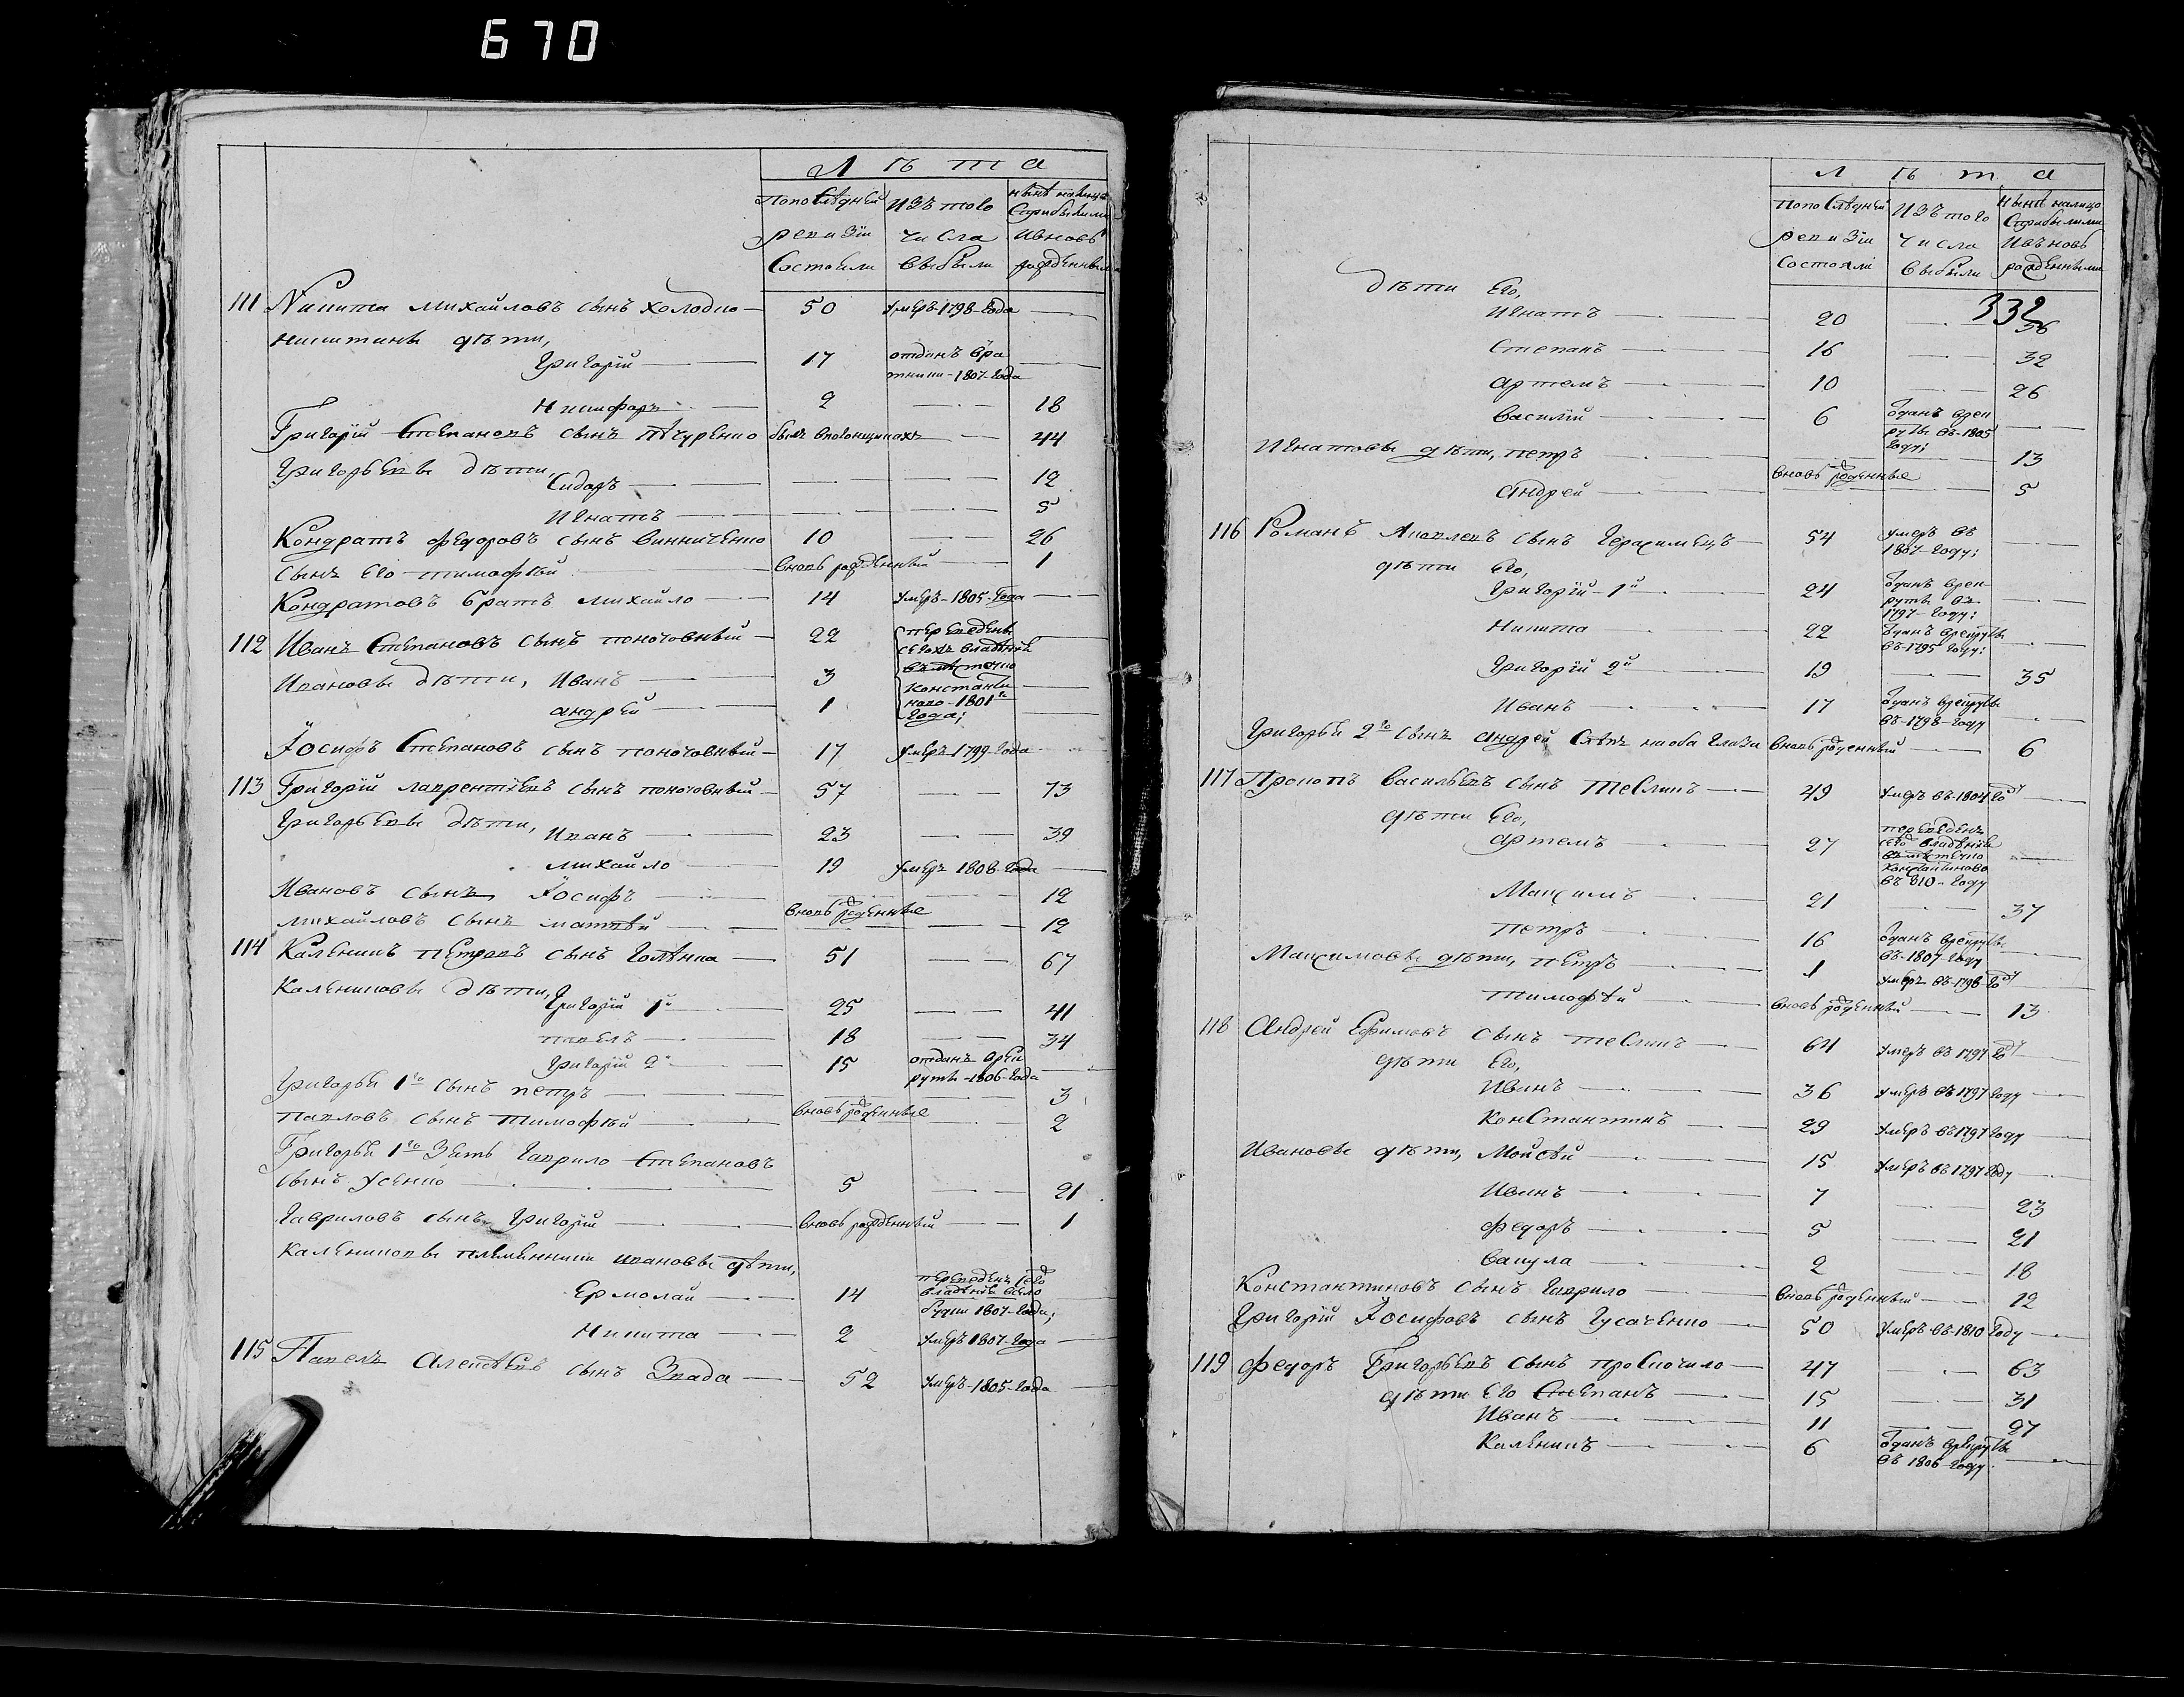 670
Лѣта
по послѣдней ревизіи состояли
изъ того числа выбыли
нынѣ налицо съ прибылыми и вновь рожденными
111 Никита Михайловъ сынъ Холодно — 50 умеръ 1798 года —
Никитины дѣти,
Григорій — 17 отданъ в ратники 1807 года —
Никифоръ — 2 — 18
Григорій Степановъ сынъ — 44
Григорьевы дѣти, Сидоръ — — — 12
Игнатъ — — — 5
Кондратъ Федоровъ сынъ Винниченко 10 — 26
сынъ его Тимофѣй — вновь рожденный — 1
Кондратовъ братъ Михайло — 14 умеръ 1805 года —
112 Иванъ Степановъ сынъ Поночовный — 22 переведены
сегожъ владѣнія
въ мѣстечко
Ивановы дѣти, Иванъ — 3 Константи
Андрей — 1 ново 1801го года;
Іосифъ Степановъ сынъ Поночовный — 17 умеръ 1799 года —
113 Григорій Лаврентіевъ сынъ Поночовный — 57 — 73
Григорьевы дѣти, Иванъ — 23 — 39
Михайло — 19 умеръ 1808 года —
Ивановъ сынъ Іосифъ — — 12
вновь рожденные
Михайловъ сынъ Матвѣй — — 12
114 Каленикъ Петровъ сынъ Голѣнка — 51 — 67
Калениковы дѣти, Григорій 1й — 25 — 41
Павелъ — 18 — 34
Григорій 2й — 15 отданъ в рек
руты 1806 года —
Григорья 1го сынъ Петръ — — 3
вновь рожденные
Павловъ сынъ Тимофѣй — — 2
Григорья 1го зять Гаврило Степановъ
сынъ Усенко — 5 — 21
Гавриловъ сынъ Григорій — вновь рожденный — 1
Калениковы племянники Ивановы дѣти,
Ермолай — 14 переведенъ сего
владѣнія в село
1807 года;
Никита — 2 умеръ 1807 года —
115 Павелъ Алексѣевъ сынъ Звада — 52 умеръ 1805 года —
Лѣта
по послѣдней ревизіи состояли
изъ того числа выбыли
нынѣ налицо съ прибылыми и въновь рожденными
332
дѣти его,
Игнатъ — 20 — 36
Степанъ — 16 — 32
Артемъ — 10 — 26
Василій — 6 отданъ в рек
руты въ 1805
году; —
Игнатовы дѣти, Петръ — — 13
вновь рожденные
Андрей — — 5
116 Романъ Яковлевъ сынъ Герасимецъ — 54 умеръ въ
1807 году; —
дѣти его,
Григорій 1й — 24 отданъ в рек
руты въ
1797 году; —
Никита — 22 отданъ в рекруты
въ 1795 году; —
Григорій 2й — 19 — 35
Иванъ — 17 отданъ в рекруты
въ 1798 году —
Григорья 2го сынъ Андрей слѣпъ на оба глаза вновь рожденный — 6
117 Прокопъ Васильевъ сынъ Теслинъ — 49 умеръ въ 1804 году —
дѣти его,
Артемъ — 27 переведенъ
сего владѣнія
въ мѣстечко
Константиново
въ 810 году —
Максимъ — 21 — 37
Петръ — 16 отданъ в рекруты
въ 1807 году —
Максимовы дѣти, Петръ — 1 умеръ въ 1798 году
Тимофѣй — вновь рожденный — 13
118 Андрей Ефимовъ сынъ Теслинъ — 64 умеръ въ 1797 году —
дѣти его,
Иванъ — 36 умеръ въ 1797 году —
Константинъ — 29 умеръ въ 1797 году —
Ивановы дѣти, Мойсѣй — 15 умеръ въ 1797 году —
Иванъ — 7 — 23
Федоръ — 5 — 21
Вакула — 2 — 18
Константиновъ сынъ Гаврило — вновь рожденный — 12
Григорій Іосифовъ сынъ Гусаченко — 50 умеръ въ 1810 году —
119 Федоръ Григорьевъ сынъ Проскочило — 47 — 63
дѣти его Степанъ — 15 — 31
Иванъ — 11 — 27
Каленикъ — 6 отданъ в рекруты
въ 1806 году —